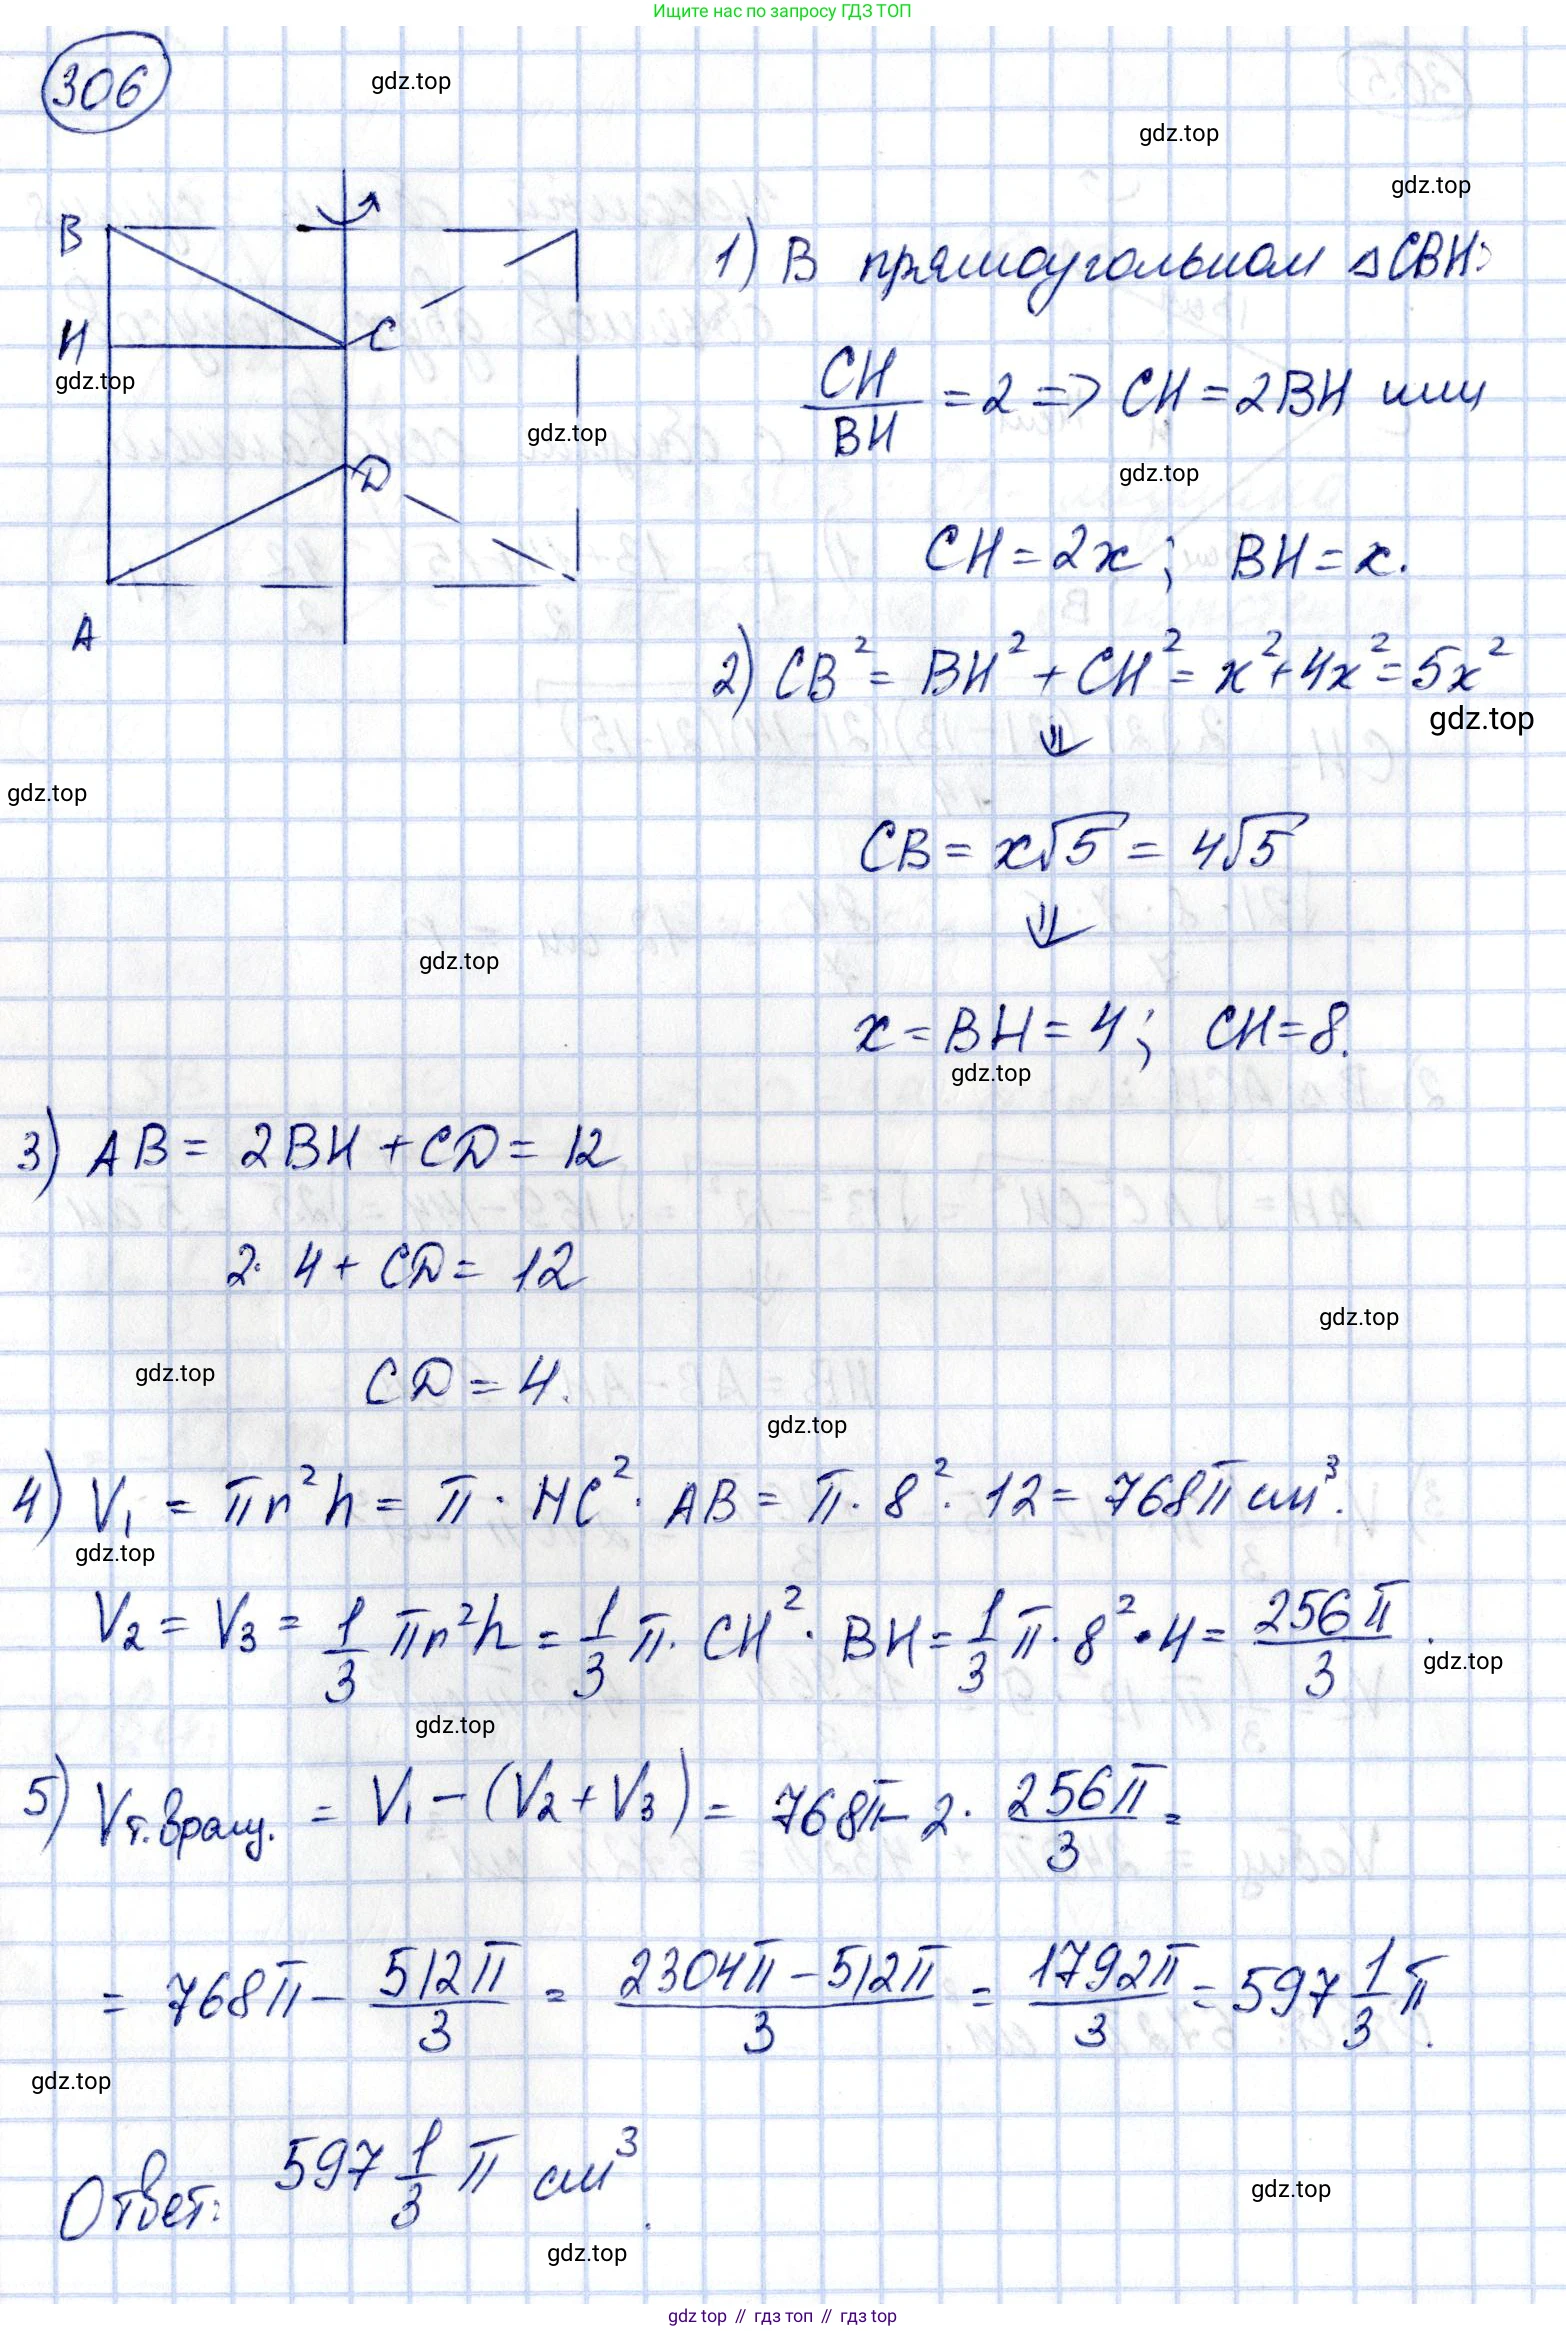 Ищите нас по запросу ГДЗ ТОП
306
gdz.top
gdz.top
gdz.top
B
H
C
gdz.top
gdz.top
D
A
1) В прямоугольном △CBH:
CH/BH = 2 => CH = 2BH или
gdz.top
CH = 2x ; BH = x.
2) CB² = BH² + CH² = x² + 4x² = 5x²
gdz.top
⇓
gdz.top
CB = x√5 = 4√5
⇓
gdz.top
x = BH = 4 ; CH = 8.
gdz.top
3) AB = 2BH + CD = 12
2 · 4 + CD = 12
gdz.top
gdz.top
CD = 4.
gdz.top
4) V₁ = πr²h = π · HC² · AB = π · 8² · 12 = 768π см³.
gdz.top
V₂ = V₃ = 1/3 πr²h = 1/3 π · CH² · BH = 1/3 π · 8² · 4 = 256π/3 .
gdz.top
gdz.top
5) Vт.вращ. = V₁ − (V₂ + V₃) = 768π − 2 · 256π/3 =
= 768π − 512π/3 = 2304π − 512π/3 = 1792π/3 = 597 1/3 π.
gdz.top
Ответ: 597 1/3 π см³.
gdz.top
gdz.top
gdz top // гдз топ // гдз top